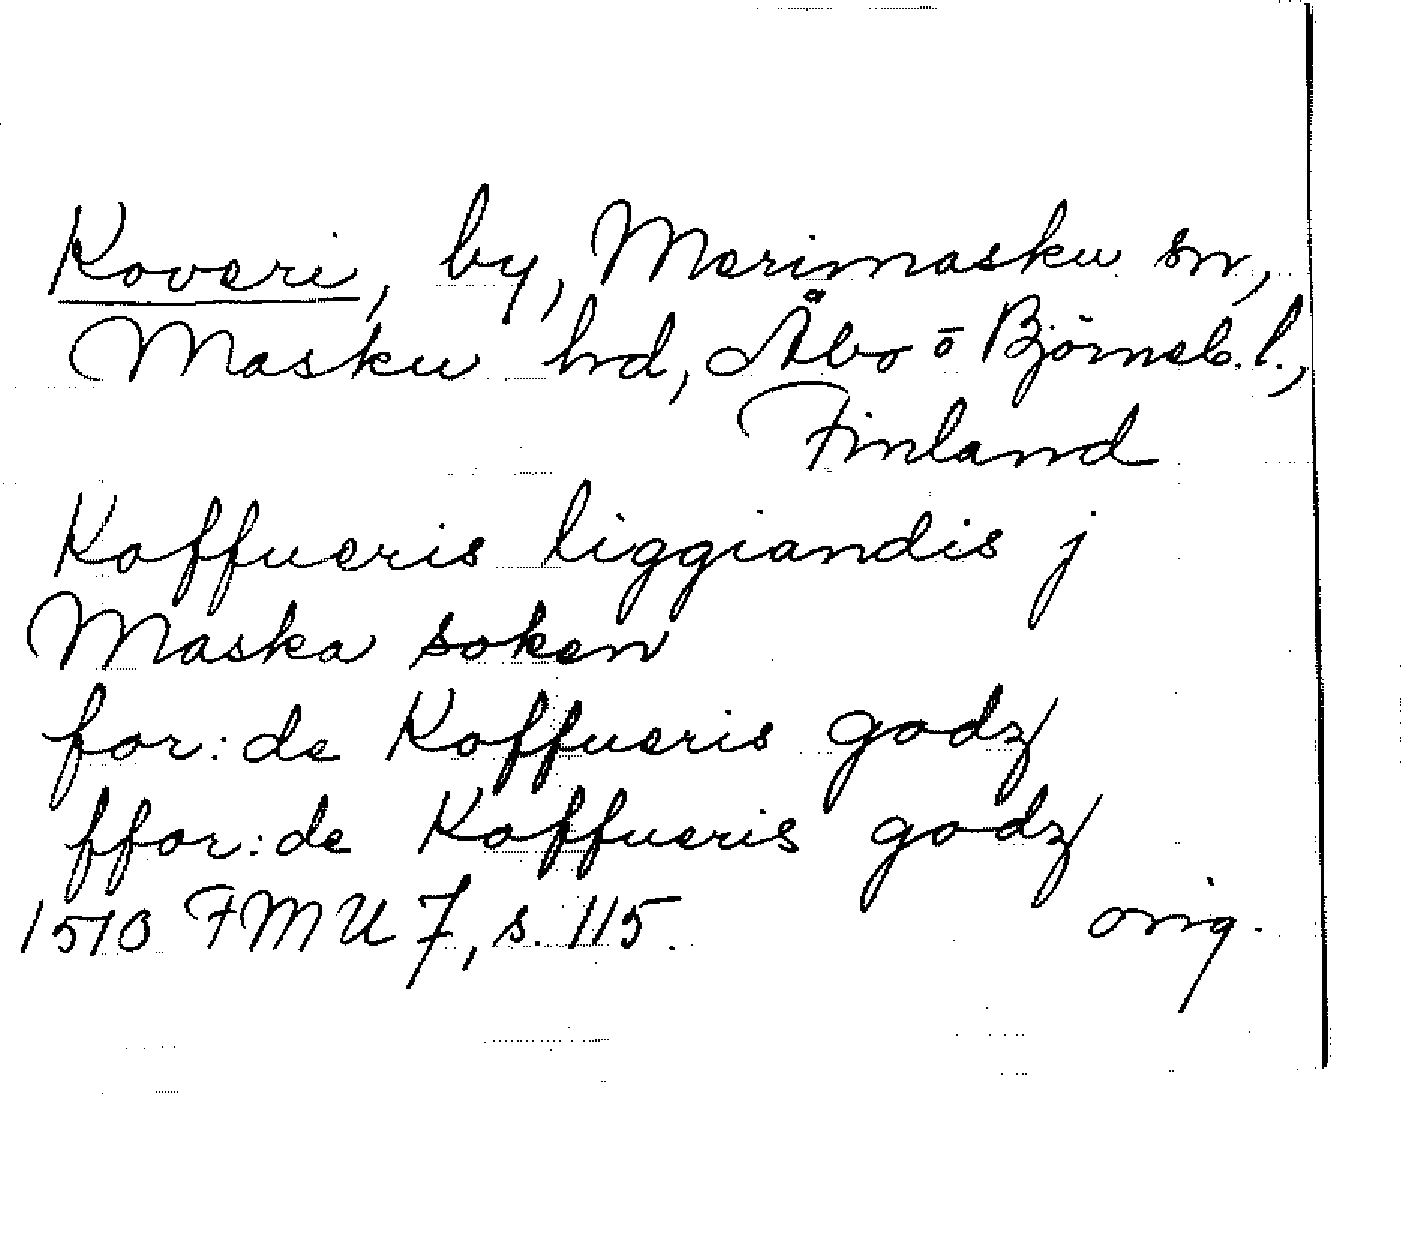 Koveri, by, Merimasku sn,
Masku hd, Åbo o Björneb. l.,
Finland
Koffueris liggiandis j
Maska soken
for: de Koffueris godz
ffor: de Koffueris godz
1510 FMU 7, s. 115. orig.